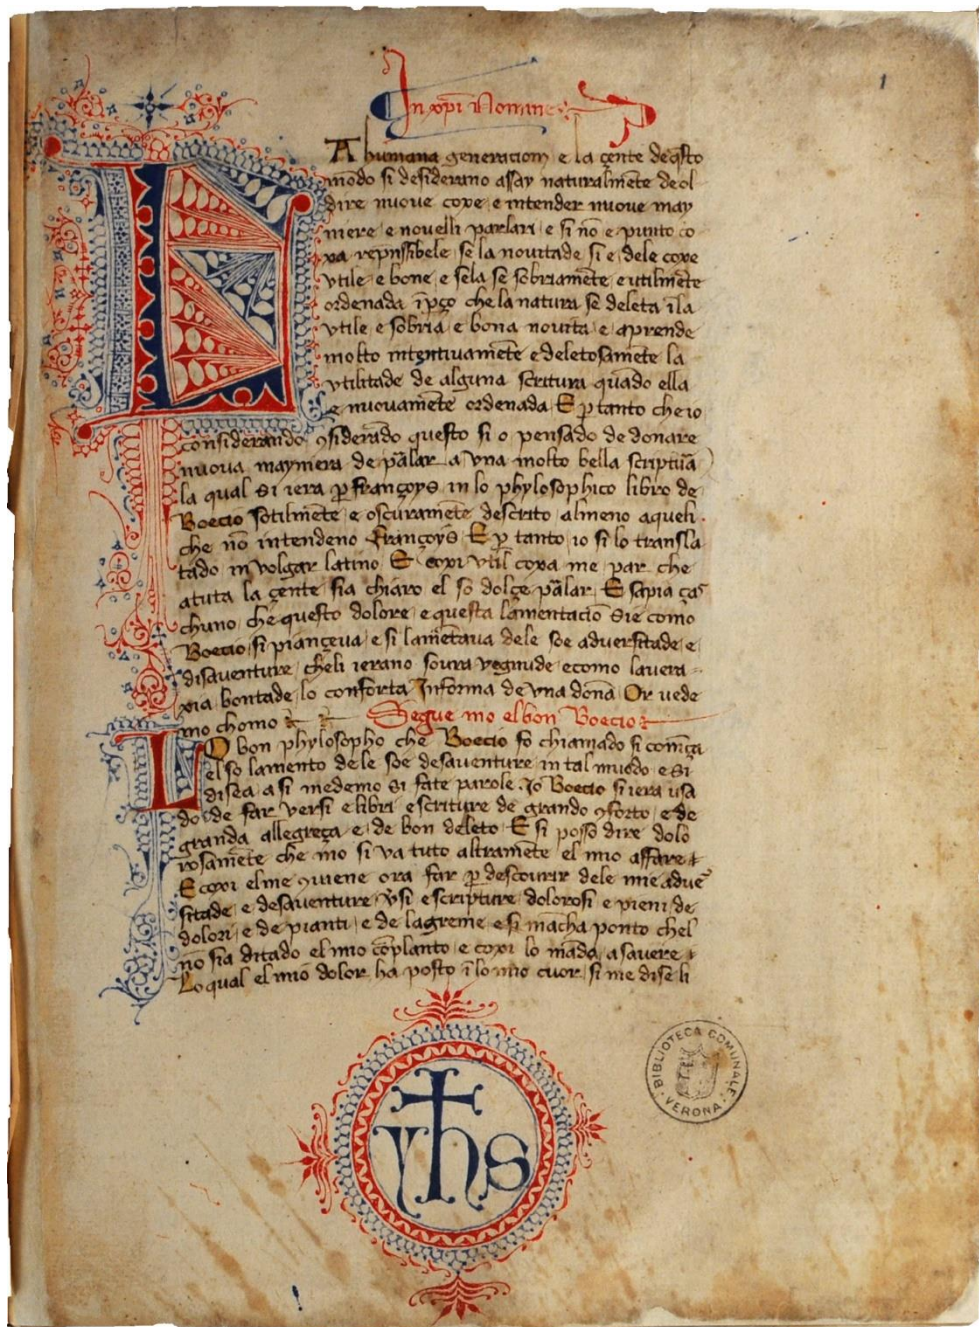 In xpi Nomine
1
LA humana generaciom e la çente de q̃sto
mõdo si desiderano assay naturalmẽte de ol
dire nuove coxe e intender nuove may
niere e novelli parlari e si nõ e punto co
xa repñssibele se la novitade si e dele coxe
vtile e bone e sela se sobriamẽte e utilmẽte
ordenada ĩpço che la natura se deleta ĩ la
vtile e sobria e bona novita e aprende
molto intẽtivamẽte e deletosamẽte la
vtilitade de alguna scritura quãdo ella
e nuovamẽte ordenada E p̱ tanto che io
considerando ꝯsiderãdo questo si o pensado de donare
nuova mayniera de pãlar a vna molto bella scriptũa
la qual si iera p̱ françoys in lo phylosophico libro de
Boecio sotilmẽte e oscuramẽte descrito almeno aqueli
che nõ intendeno françoys E p̱ tanto io si lo transla
tado in volgar latino E coxi vtil coxa me par che
atuta la çente sia chiaro el so dolçe pãlar E sapia çaᷤ
chuno che questo dolore e questa lamentaciõ sie como
Boecio si piançeva e si lamẽtava dele soe adversitade e
disaventure cheli ierano soura vegnude ecomo lavera
xia bontade lo conforta Informa de vna donã Or vede
mo chomo Segue mo el bon Boecio
LO bon phylosopho che Boecio fo chiamado si comẽça
el so lamento dele soe desaventure in tal muodo e si
disea a si medemo si fate parole Jo Boecio si iera usa
do de far versi e libri e scriture de grando ꝯforto e de
granda allegreça e de bon deleto E si posso dire dolo
rosamẽte che mo si va tuto altramẽte el mio affare
E coxi el me ꝯviene ora far p̱ descovrir dele mie adveᷣ
sitade e desaventure v̓si e scripture dolorosi e pieni de
dolori e de pianti e de lagreme e si mãcha ponto chel
nõ sia ditado el mio cõplanto e coxi lo mãda a savere
Lo qual el mio dolor ha posto ĩ lo mio cuor si me dise li
yhs
BIBLIOTECA COMUNALE
VERONA